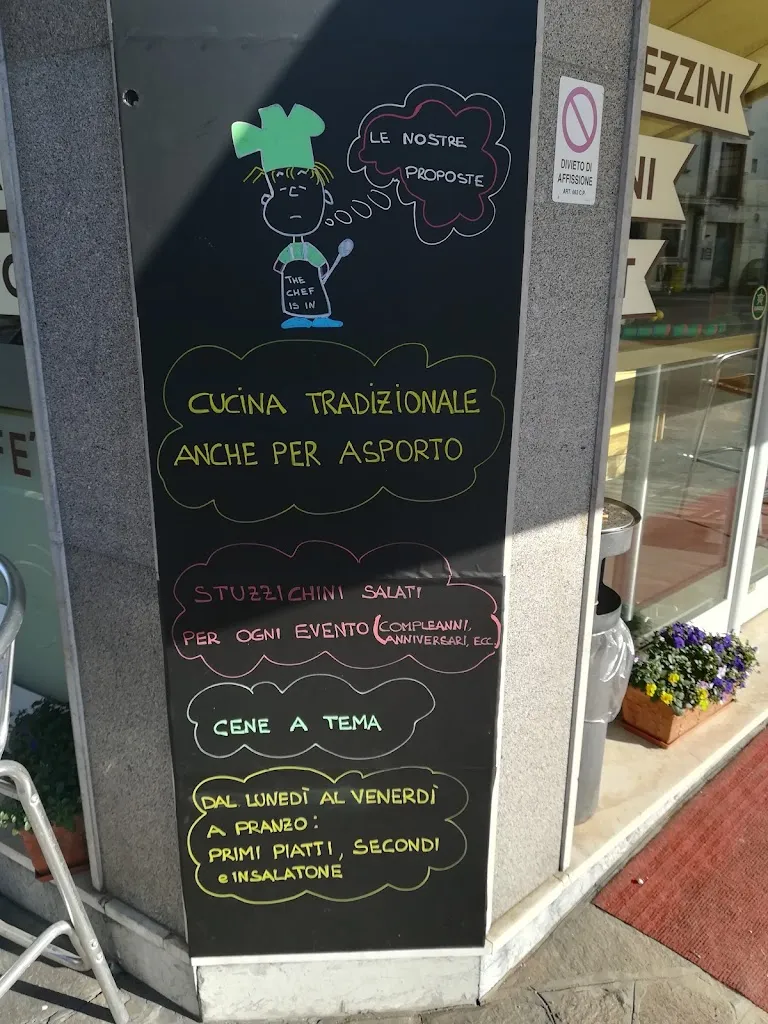 LE NOSTRE
PROPOSTE
THE
CHEF
IS IN
CUCINA TRADIZIONALE
ANCHE PER ASPORTO
STUZZICHINI SALATI
PER OGNI EVENTO (COMPLEANNI,
ANNIVERSARI, ECC.)
CENE A TEMA
DAL LUNEDÌ AL VENERDÌ
A PRANZO:
PRIMI PIATTI, SECONDI
e INSALATONE
DIVIETO DI
AFFISSIONE
ART. 663 C.P.
EZZINI
NI
T